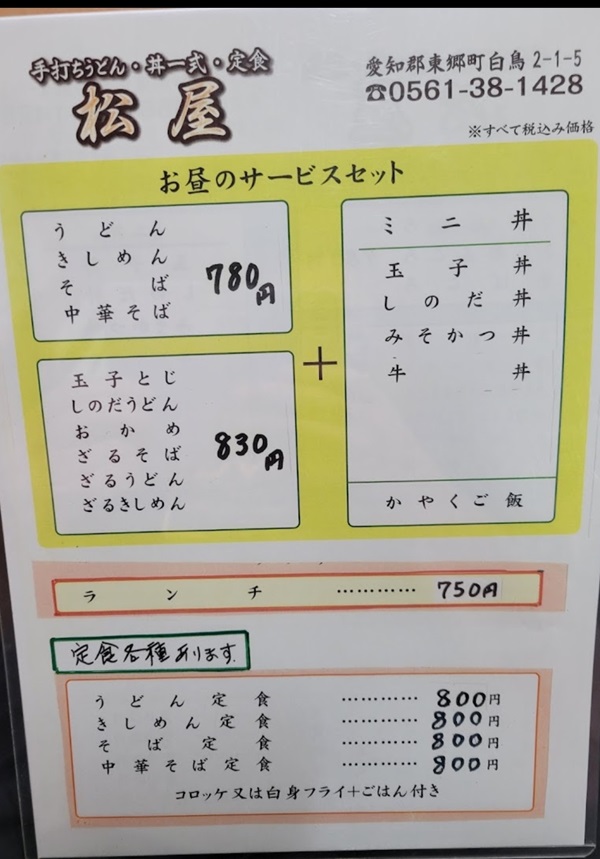 手打ちうどん・丼一式・定食
松屋
愛知郡東郷町白鳥 2-1-5
☎0561-38-1428
※すべて税込み価格
お昼のサービスセット
うどん
きしめん
そば
中華そば
780円
玉子とじ
しのだうどん
おかめ
ざるそば
ざるうどん
ざるきしめん
830円
+
ミニ丼
玉子丼
しのだ丼
みそかつ丼
牛丼
かやくご飯
ランチ ………… 750円
定食各種あります
うどん定食 ………… 800円
きしめん定食 ………… 800円
そば定食 ………… 800円
中華そば定食 ………… 800円
コロッケ又は白身フライ+ごはん付き